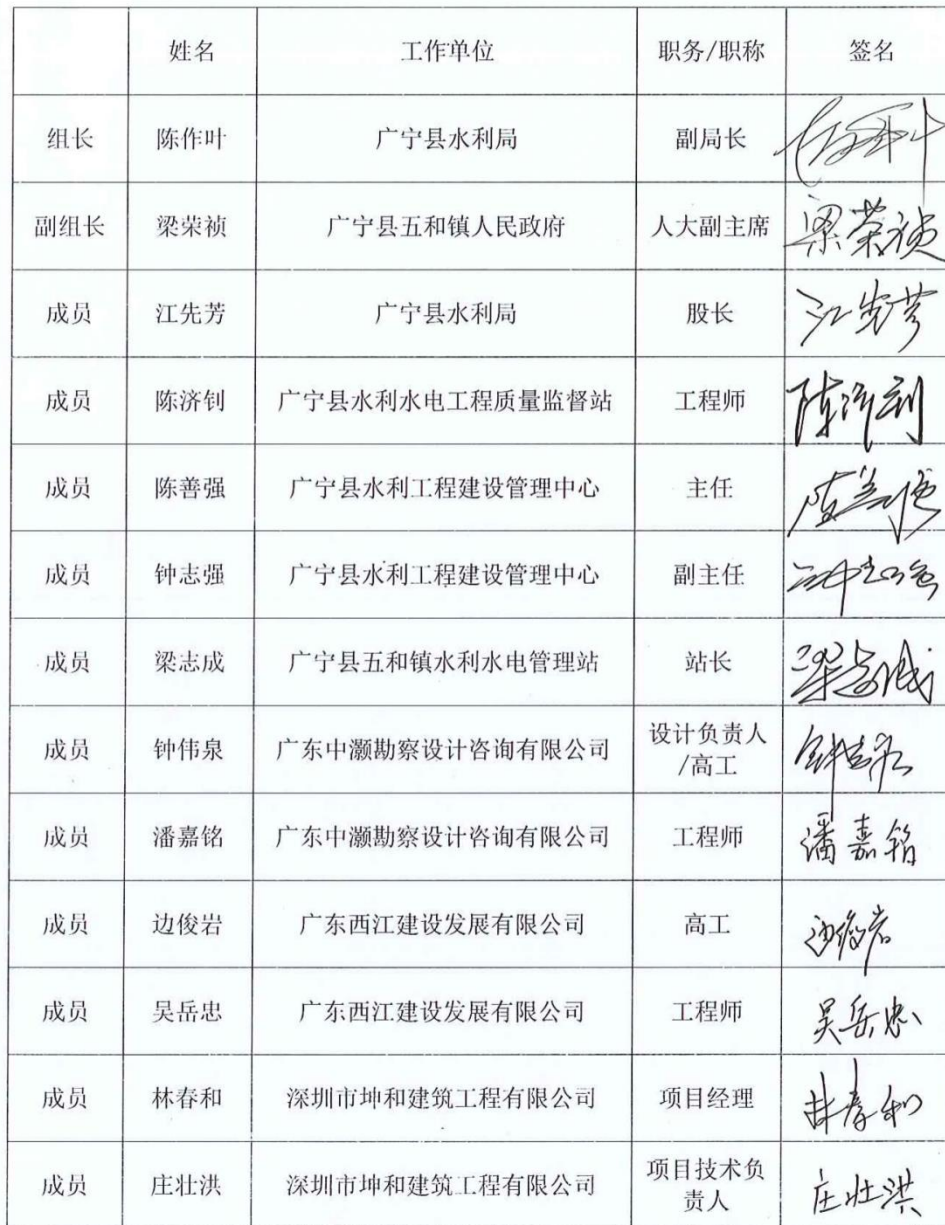 姓名 工作单位 职务/职称 签名
组长 陈作叶 广宁县水利局 副局长
副组长 梁荣祯 广宁县五和镇人民政府 人大副主席 梁荣祯
成员 江先芳 广宁县水利局 股长 江先芳
成员 陈济钊 广宁县水利水电工程质量监督站 工程师 陈济钊
成员 陈善强 广宁县水利工程建设管理中心 主任 陈善强
成员 钟志强 广宁县水利工程建设管理中心 副主任 钟志强
成员 梁志成 广宁县五和镇水利水电管理站 站长 梁志成
成员 钟伟泉 广东中灏勘察设计咨询有限公司 设计负责人
/高工
成员 潘嘉铭 广东中灏勘察设计咨询有限公司 工程师 潘嘉铭
成员 边俊岩 广东西江建设发展有限公司 高工 边俊岩
成员 吴岳忠 广东西江建设发展有限公司 工程师 吴岳忠
成员 林春和 深圳市坤和建筑工程有限公司 项目经理 林春和
成员 庄壮洪 深圳市坤和建筑工程有限公司 项目技术负
责人 庄壮洪